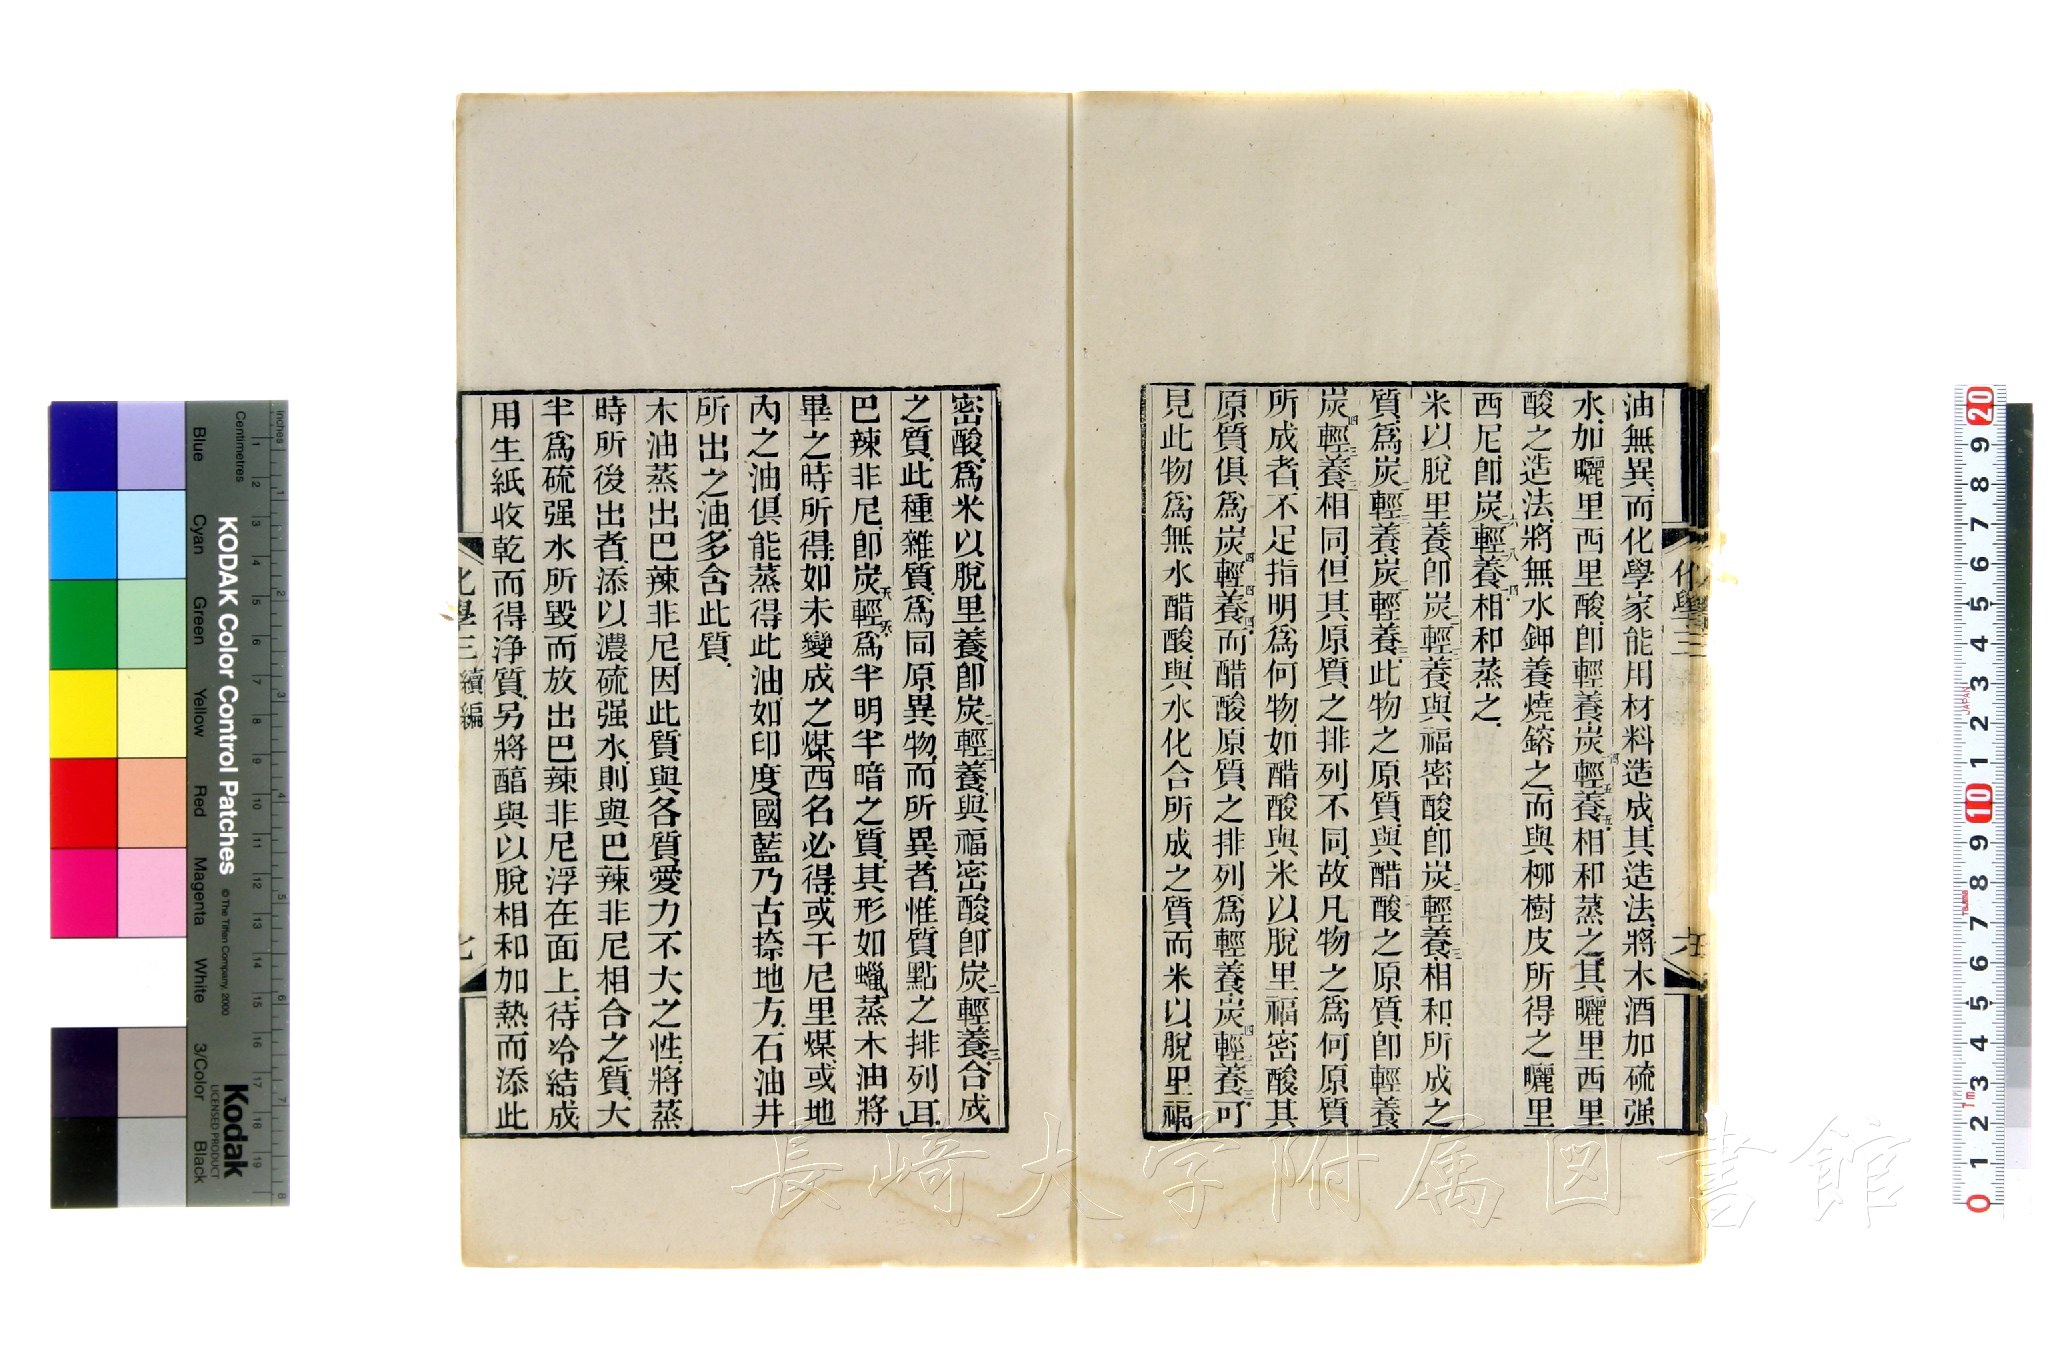 油無異而化學家能用材料造成其造法將木酒加硫强
水加曬里西里酸卽輕養炭輕養相和蒸之其曬里西里
酸之造法將無水鉀養燒鎔之而與柳樹皮所得之曬里
西尼卽炭輕養相和蒸之
米以脫里養卽炭輕養與福密酸卽炭輕養相和所成之
質爲炭輕養炭輕養此物之原質與醋酸之原質卽輕養
炭輕養相同但其原質之排列不同故凡物之爲何原質
所成者不足指明爲何物如醋酸與米以脫里福密酸其
原質俱爲炭輕養而醋酸原質之排列爲輕養炭輕養可
見此物爲無水醋酸與水化合所成之質而米以脫里福
密酸爲米以脫里養卽炭輕養與福密酸卽炭輕養合成
之質此種雜質爲同原異物而所異者惟質點之排列耳
巴辣非尼卽炭輕爲半明半暗之質其形如蠟蒸木油將
畢之時所得如未變成之煤西名必得或干尼里煤或地
內之油俱能蒸得此油如印度國藍乃古捺地方石油井
所出之油多含此質
木油蒸出巴辣非尼因此質與各質愛力不大之性將蒸
時所後出者添以濃硫强水則與巴辣非尼相合之質大
半爲硫强水所毀而放出巴辣非尼浮在面上待冷結成
用生紙收乾而得淨質另將醕與以脫相和加熱而添此
化學三 續編
七
長崎大学附属図書館
KODAK Color Control Patches
© The Tiffen Company, 2000
Kodak
LICENSED PRODUCT
Inches
Centimetres
Blue
Cyan
Green
Yellow
Red
Magenta
White
3/Color
Black